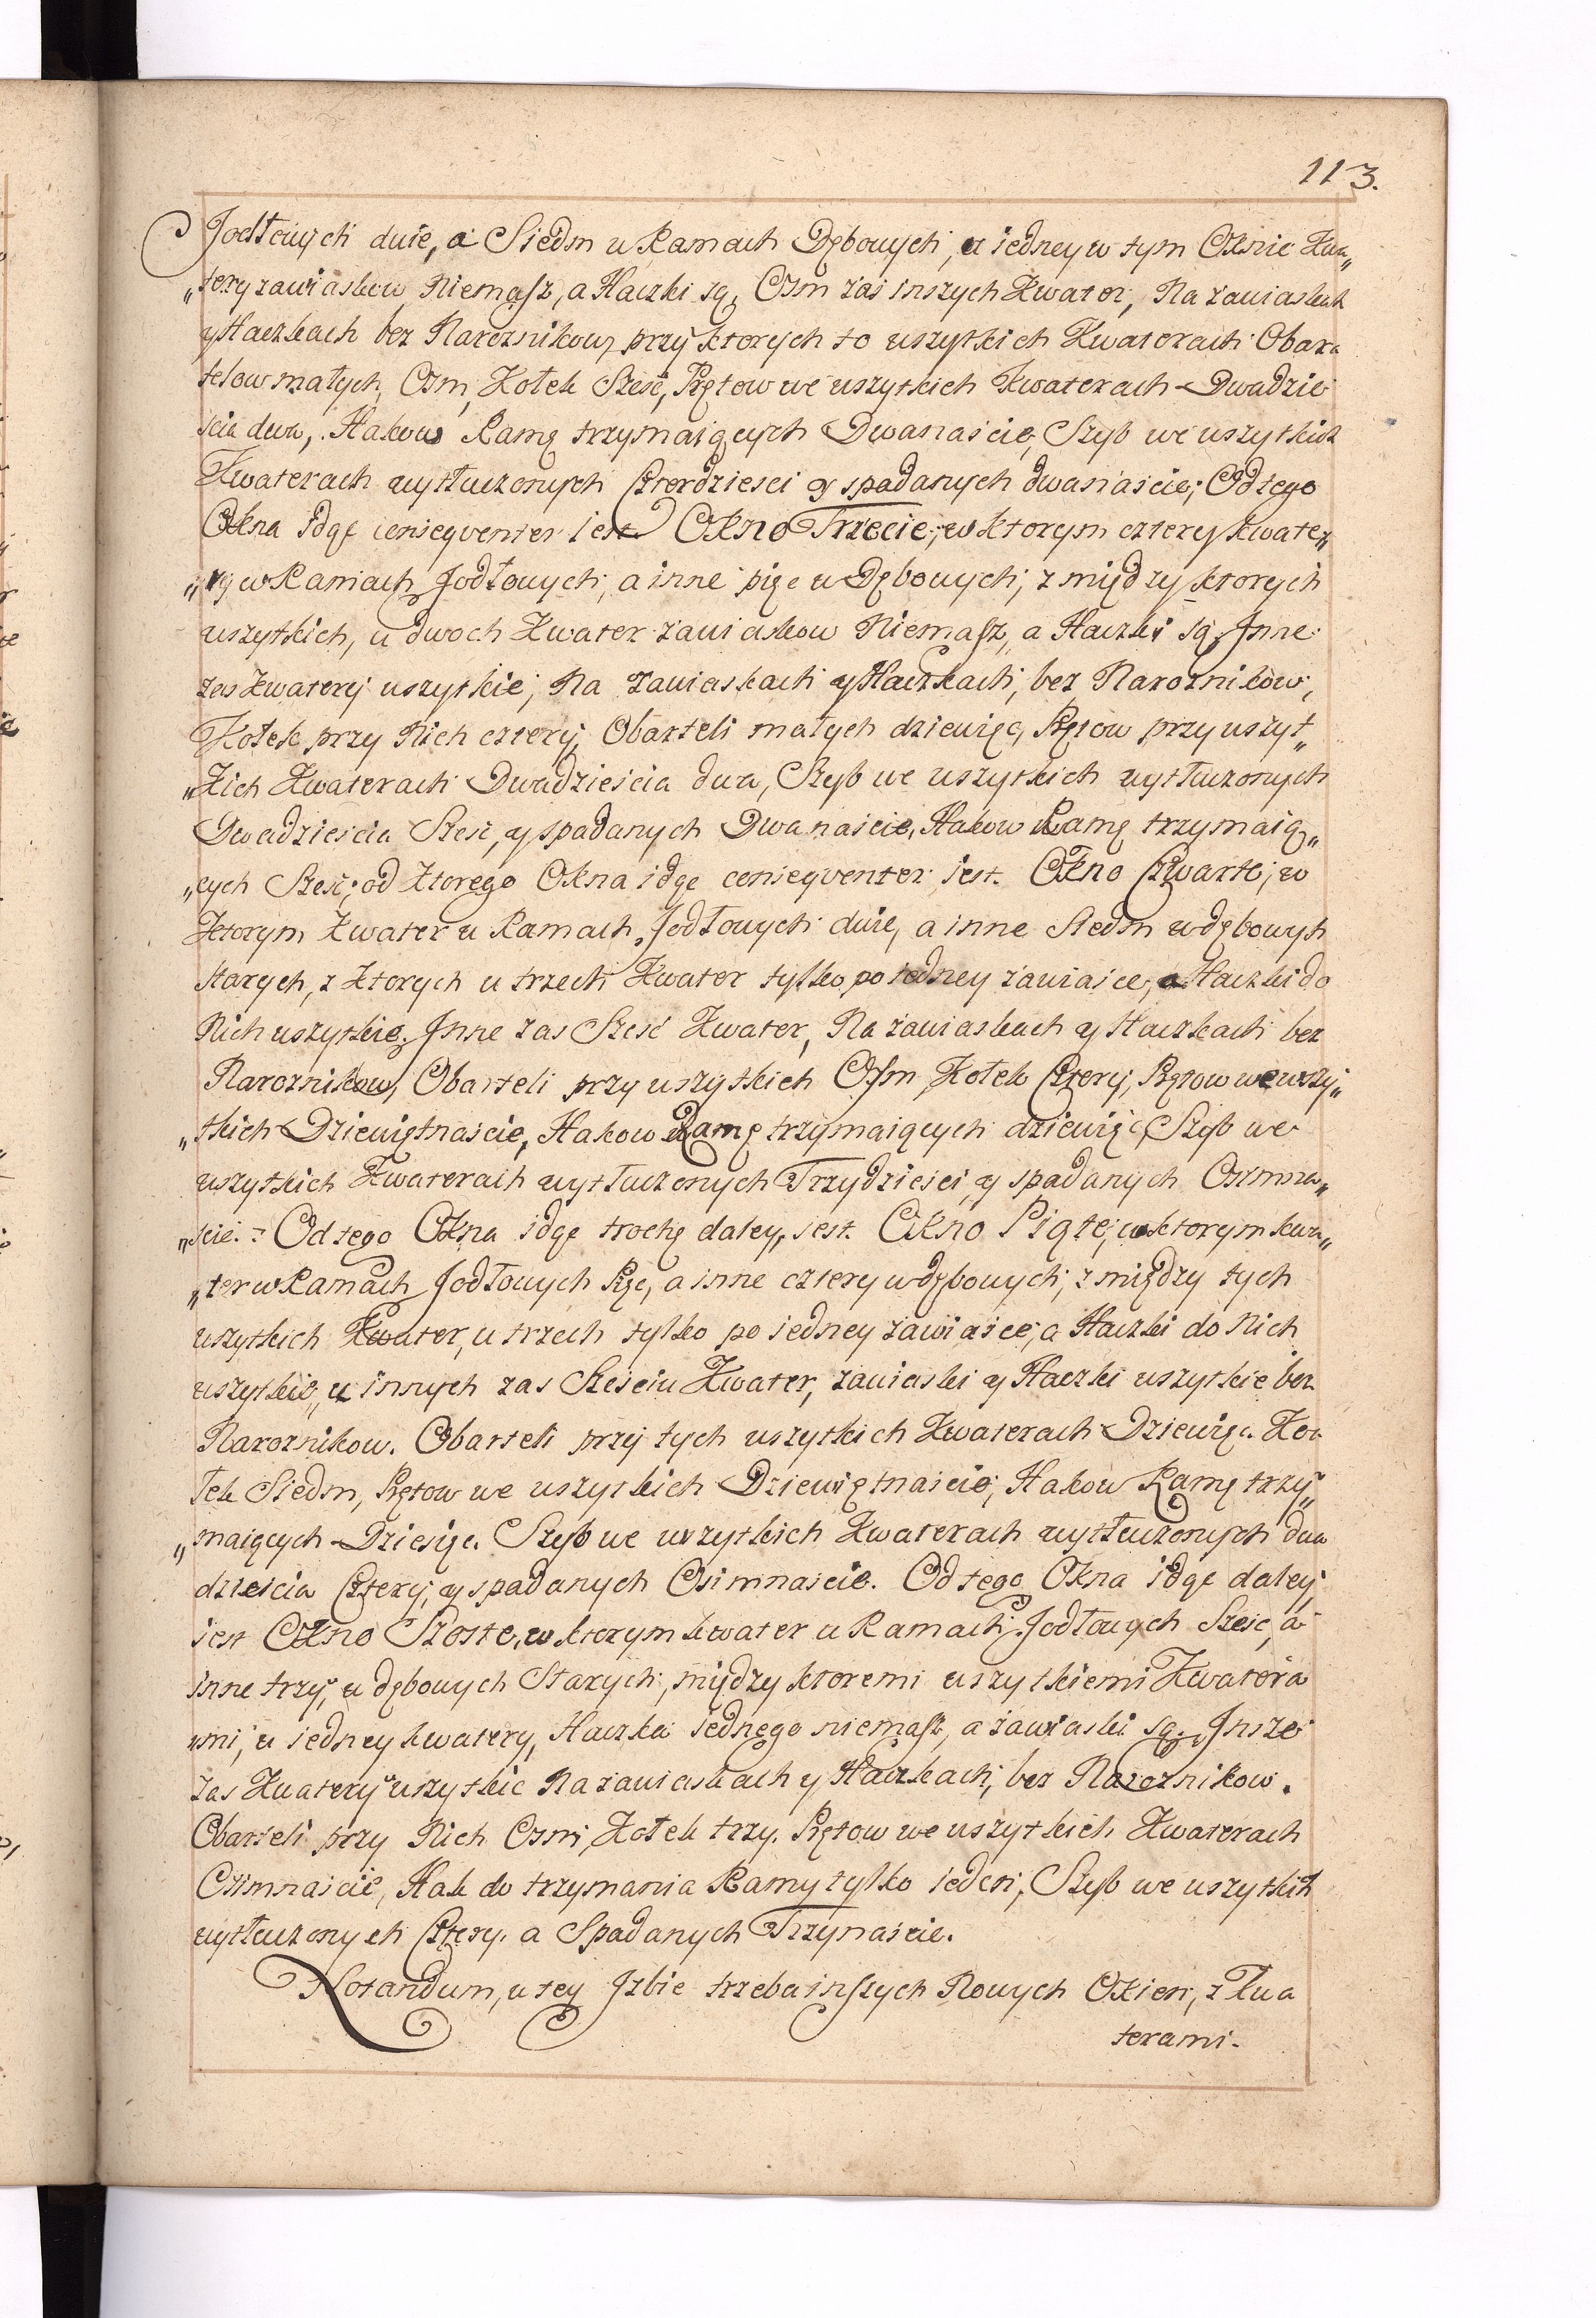 113.
Jodłowych dwie, a Siedm w Ramach Dębowych, u iedney w tym Oknie Kwa„
„tery zawiasków Niemasz, a Haczki są, Osm zas inszych Kwater, Na zawiaskach
y Haczkach bez Narożnikow, przy ktorych to wszytkich Kwaterach Obar„
telow małych Osm, Kołek Sześć, Prętow we wszytkich Kwaterach Dwadzie
ścia dwa, Hakow Ramę trzymaiących Dwanaście, Szyb we wszytkich
Kwaterach wytłuczonych Czterdzieści y spadanych dwanaście; Od tego
Okna idąc consequenter iest Okno Trzecie, w ktorym cztery kwate„
„ry w Ramach Jodłowych, a inne pięc w Dębowych, z między ktorych
wszytkich, u dwoch Kwater zawiaskow Niemasz, a Haczki są, Inne
zas Kwatery wszytkie, Na zawiaskach y Haczkach, bez Narożnikow,
Kołek przy Nich cztery, Obarteli małych dziewięc, Prętow przy wszyt„
„kich Kwaterach Dwadzieścia dwa, Szyb we wszytkich wytłuczonych
Dwadzieścia Sześć, y spadanych Dwanaście, Hakow Ramę trzymaią„
„cych Sześć; od ktorego Okna idąc consequenter iest. Okno Czwarte, w
ktorym Kwater w Ramach Jodłowych dwie, a inne Siedm w dębowych
starych, z ktorych u trzech Kwater tylko po iedney zawiasce, a Haczki do
Nich wszytkie. Inne zas Sześć Kwater, Na zawiaskach y Haczkach bez
Narożnikow, Obarteli przy wszytkich Osm, Kołek Cztery, Prętow we wszy„
„tkich Dziewiętnaście, Hakow Ramę trzymaiących dziewięć, Szyb we
wszytkich Kwaterach wytłuczonych Trzydzieści, y spadanych Osimna„
„ście. Od tego Okna idąc trochę daley, iest. Okno Piąte, w ktorym kwa„
„ter w Ramach Jodłowych Pięc, a inne cztery w dębowych, z między tych
wszytkich Kwater, u trzech tylko po iedney zawiasce, a Haczki do Nich
wszytkie, u innych zas Sześciu Kwater, zawiaski y Haczki wszytkie bez
Narożnikow. Obarteli przy tych wszytkich Kwaterach Dziewięc. Ko„
łek Siedm, Prętow we wszytkich Dziewiętnaście, Hakow Ramę trzy„
„maiących Dziesięc. Szyb we wszytkich Kwaterach wytłuczonych dwa
dzieścia Cztery, y spadanych Osimnaście. Od tego Okna idąc daley
iest Okno Szoste, w ktorym kwater w Ramach Jodłowych Sześć, a
inne trzy, w dębowych Starych, między ktoremi wszytkiemi Kwatera
mi, u iedney kwatery, Haczka iednego niemasz, a zawiaski są. Insze
zas Kwatery wszytkie Na zawiaskach y Haczkach, bez Narożnikow.
Obarteli przy Nich Osm, Kołek trzy. Prętow we wszytkich Kwaterach
Osimnaście, Hak do trzymania Ramy tylko ieden, Szyb we wszytkich
wytłuczonych Cztery. a Spadanych Trzynaście.
Notandum, w tey Izbie trzeba inszych Nowych Okien, z Kwa
terami.